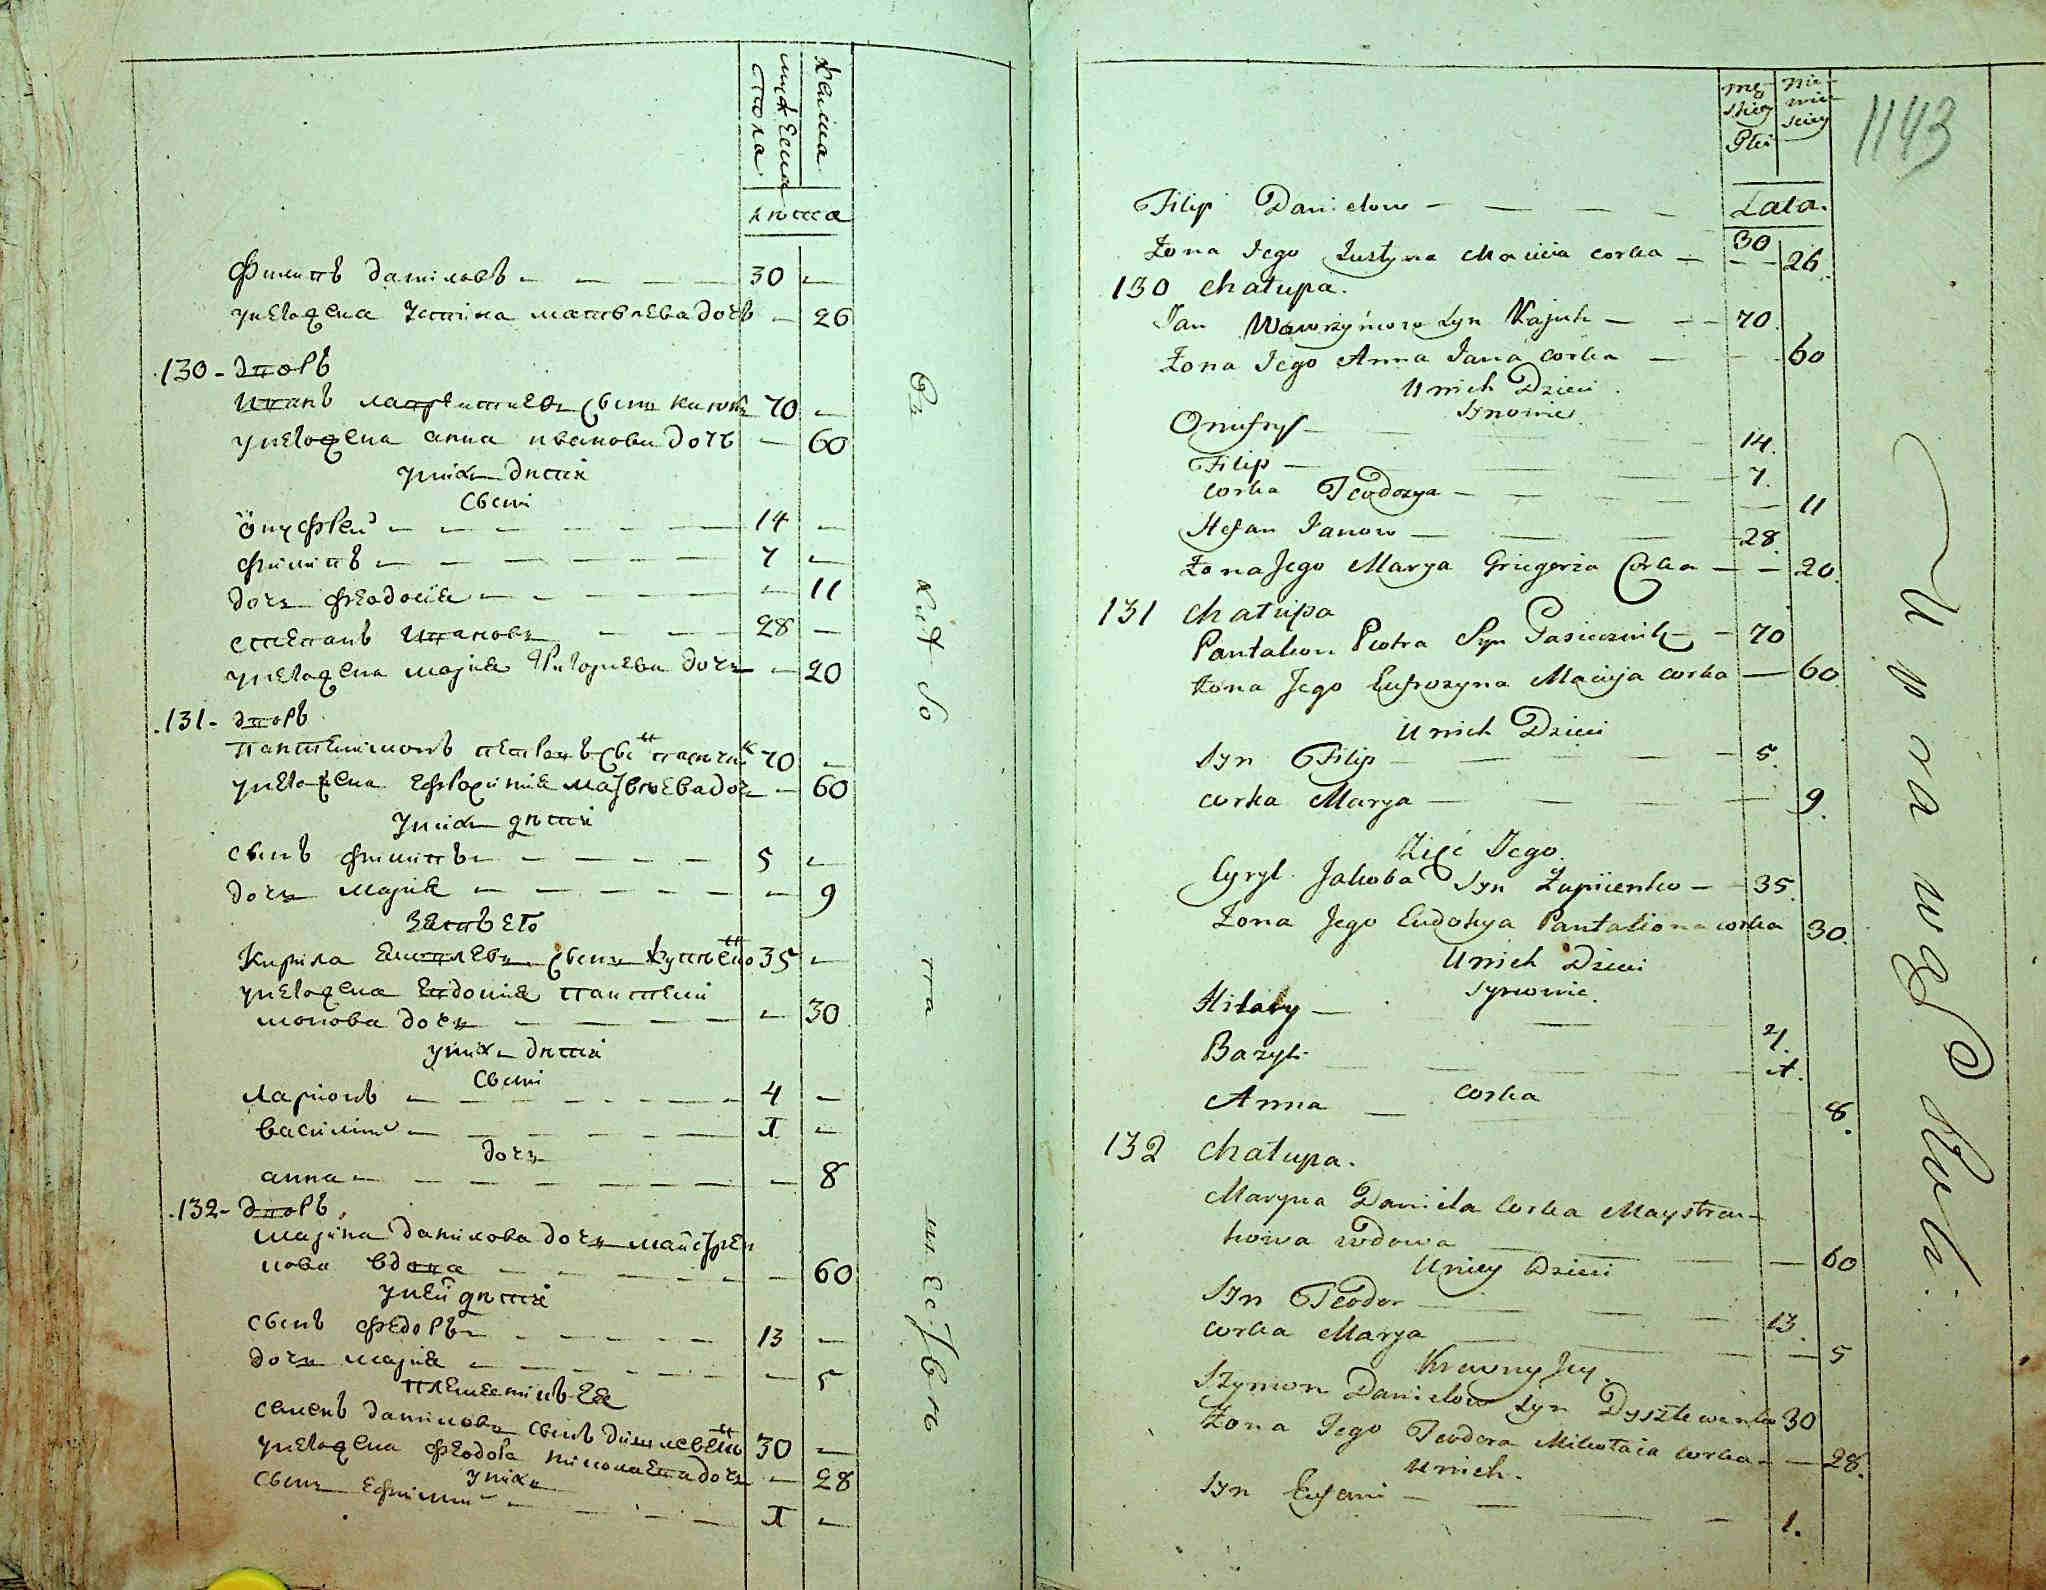 мужеска
пола
женска
лѣта
филипъ данiловъ 30
унего жена Устина матвѣева дочъ 26
130 - дворъ
Иванъ лаврентиевъ сынъ каюкъ 70
унего жена анна иванова дочъ 60
унихъ дѣти
сыни
Онуфрей 14
филипъ 7
дочъ феодосия 11
степанъ Ивановъ 28
унего жена мария Григориева дочъ 20
131 - дворъ
пантелимонъ петровъ сынъ пасечник 70
унего жена ефросиния матвѣева доч 60
унихъ дѣти
сынъ филипъ 5
дочъ мария 9
зять его
Кирила сынъ 35
унего жена Евдокия пантели
монова дочъ 30
унихъ дѣти
сыни
ларионъ 4
василий 1
дочъ
анна 8
132 - дворъ
марина данилова дочъ майстрен
кова вдова 60
уней дѣти
сынъ федоръ 13
дочъ мария 5
племенiкъ ея
семенъ даниловъ сынъ 30
унего жена феодора николаева дочъ 28
унихъ
сынъ Ефимий 1
мę
skiey
Płci
nie
wie
sciey
1143
Lata.
Filip Danielow 30
Żona Jego Justyna Macieia corka 26
130 chałupa.
Jan Wawrzyńcow syn Kajuk 70
Żona Jego Anna Jana corka 60
Unich Dzieci
synowie
Onufry 14.
Filip 7.
corka Teodozya 11
Stefan Janow 28.
Żona Jego Marya Griegorza Corka 20
131 chałupa
Pantalion Piotra Syn Pasiecznik 70
żona Jego Eufrozyna Macieja corka 60
Unich Dzieci
syn Filip 5.
corka Marya 9.
Zięć Jego.
Cyryl Jakoba syn 35
Żona Jego Eudokya Pantaliona corka 30.
Unich Dzieci
synowie.
Hilary 4.
Bazyli 1.
corka
Anna 8.
132 chałupa.
Maryna Daniela corka Maystren-
kowa wdowa 60
Uniey Dzieci
Syn Teodor 13.
corka Marya 5
Krewny Jey.
Szymon Danielow syn 30
Żona Jego Teodora Mikołaia corka 28.
Unich.
syn 1.